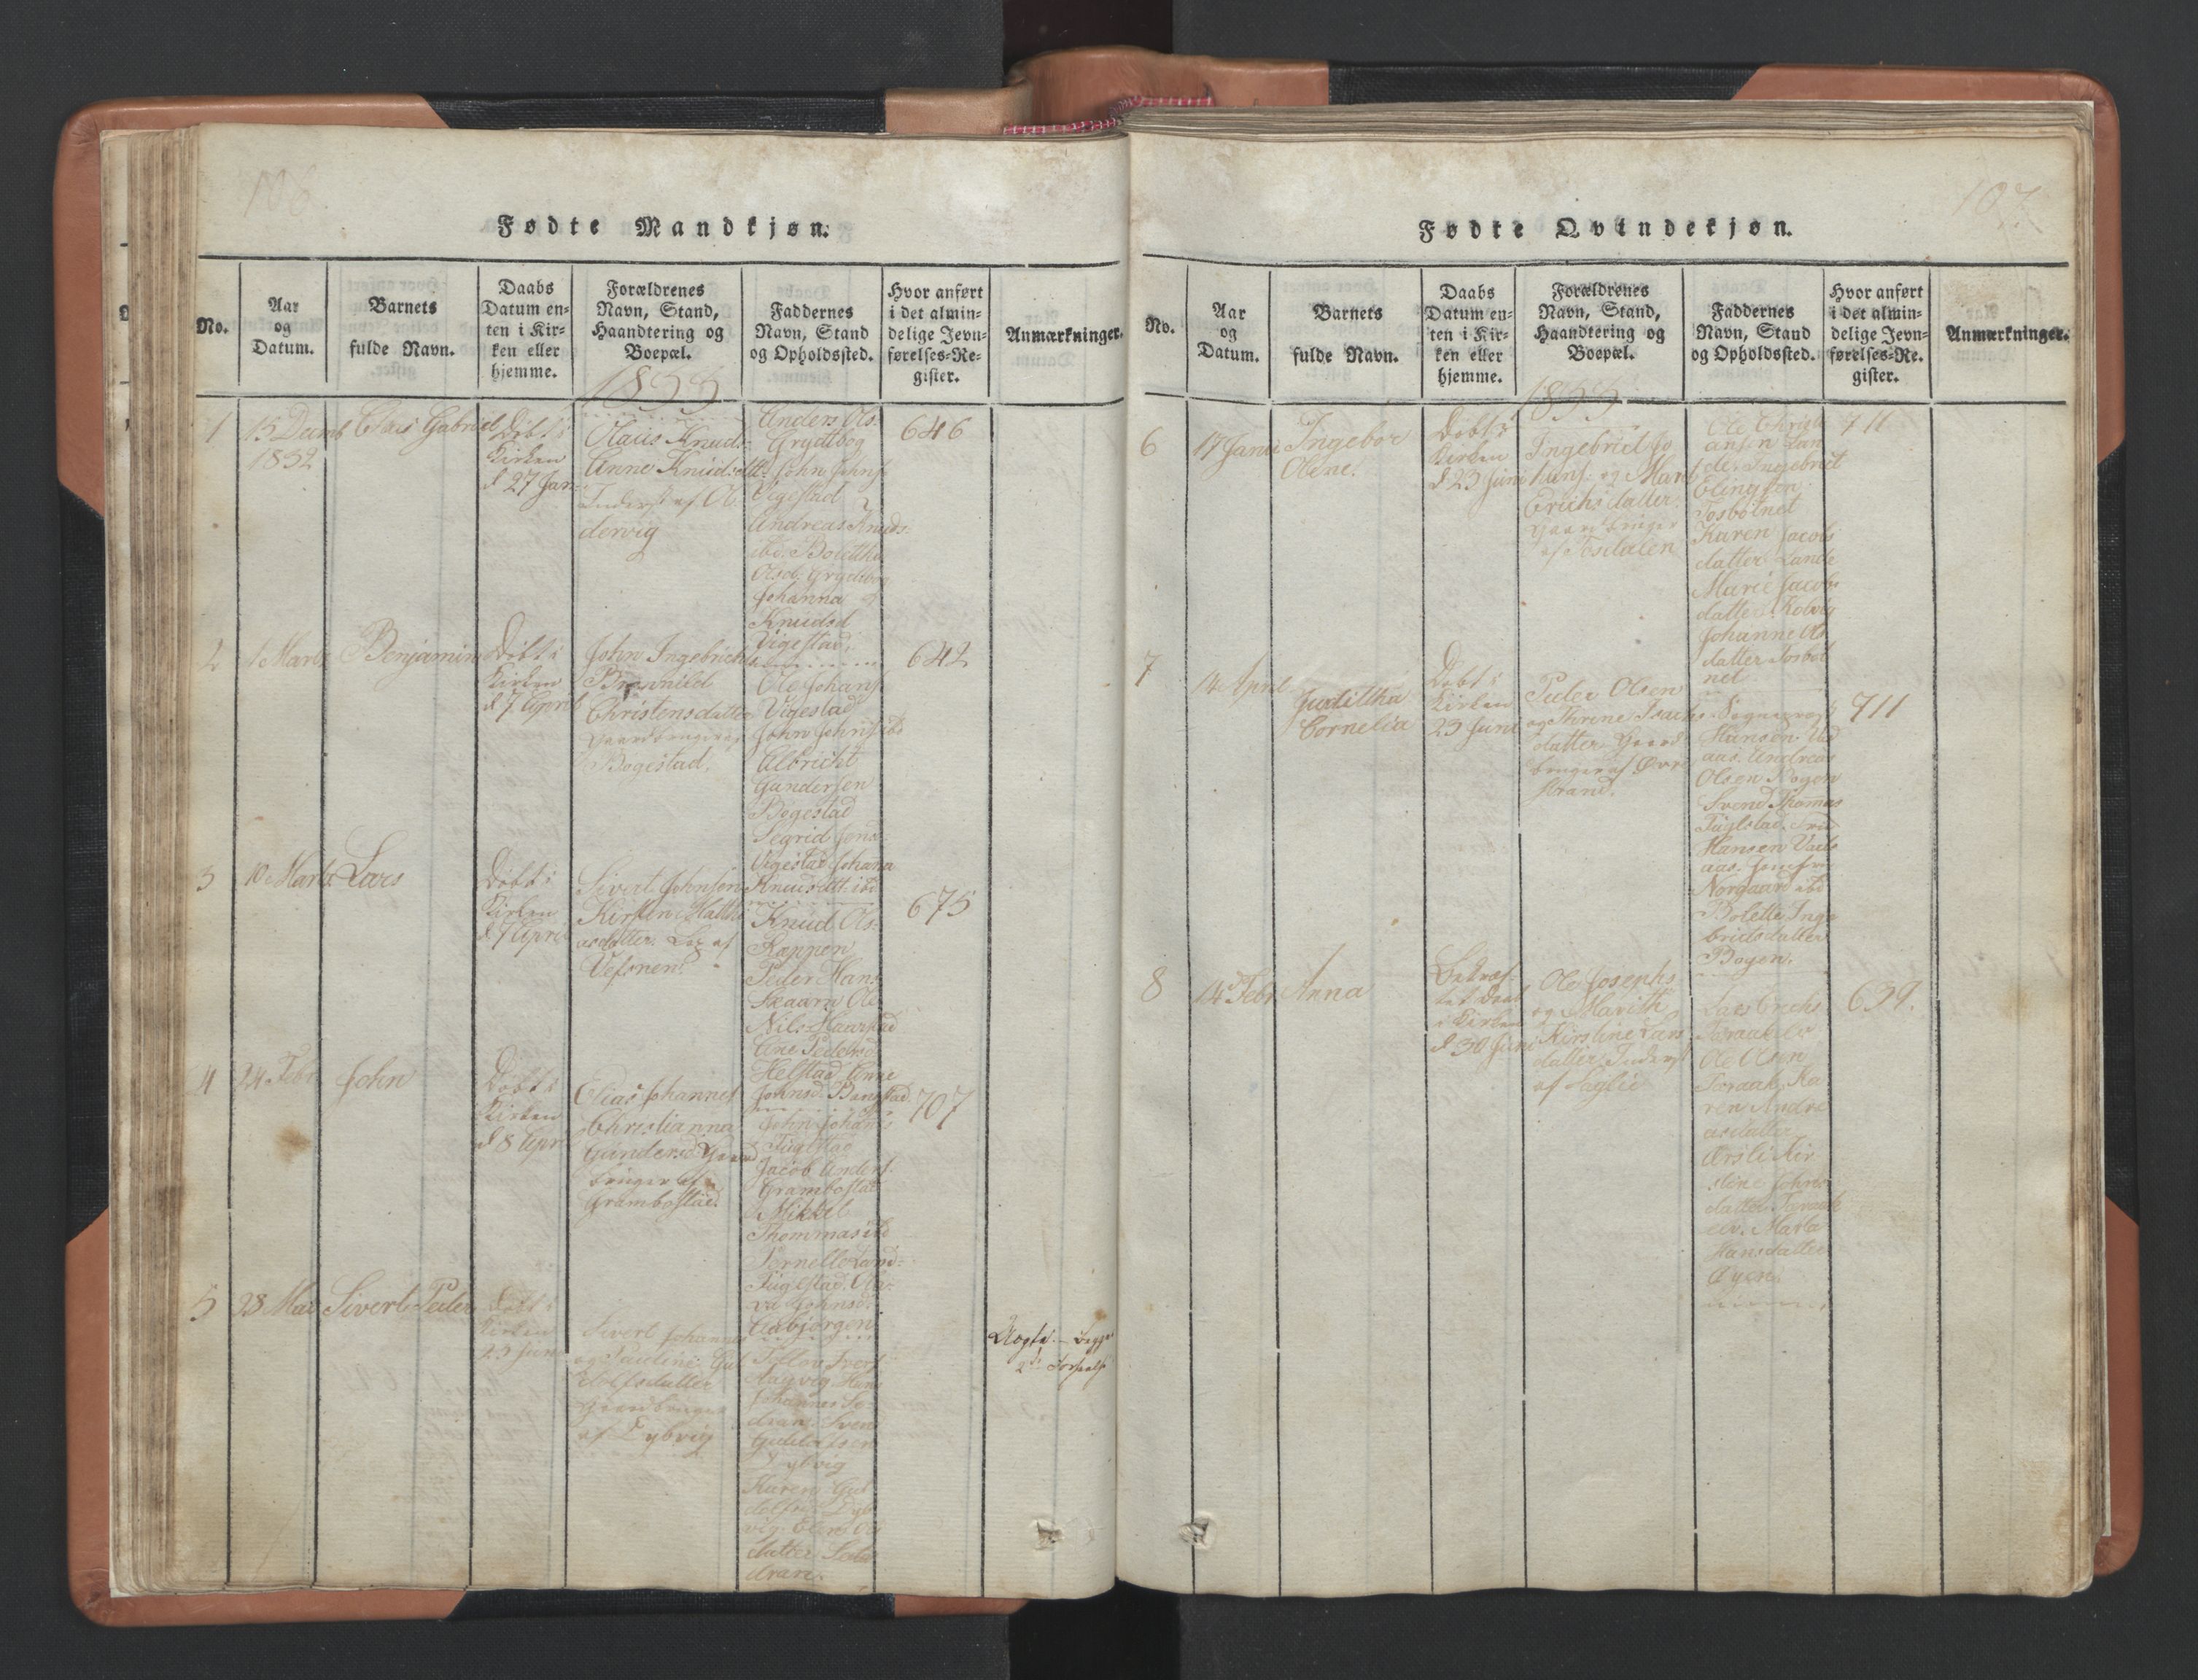 106
Fødte Mandkjøn.
No.
Aar
og
Datum.
Barnets
fulde Navn.
Daabs
Datum en-
ten i Kir-
ken eller
hjemme.
Forældrenes
Navn, Stand,
Haandtering og
Boepæl.
Faddernes
Navn, Stand
og Opholdssted.
Hvor anført
i det almin-
delige Jevn-
førelses-Re-
gister.
Anmærkninger.
1833
1
15 Decmb
1832
Claus Gabriel
Døbt i
Kirken
d 27 Jan
Olaus Knuds
Anne Knudsdtt
Inderst af
dervig
Anders Ols.
Grydtbog
John Johns
Vigestad
Andreas Knuds.
ibd. Boletha
Olsd. Grydtbog
Johanna
Knudsd
Vigestad.
646
2
1 Marts
Benjamin
Døbt i
Kirken
d 7 April
John Ingebrichts
Christensdatter
Gaardbruger af
Bogestad.
Ole Johans
Vigestad
John Johns ibd
Albricht
Gundersen
Bogestad
Segrid Jens
Vigestad Johana
Knudsdtt. ibd
642
3
10 Marts
Lars
Døbt i
Kirken
d 7 April
Sivert Johnsen
Kirsten Matthi
asdatter. Lex af
Vefsnen.
Knud Ols.
Kappen
Peder Hans
Skaarn Ole
Nils. Haarstad
Ane Pedersd
Helstad Anne
Johnsd. Benstad
675
4
24 Febr
John
Døbt i
Kirken
d 8 Apri
Elias Johannes
Christianna
Gundersd. Gaard
bruger af
Grambostad.
John Johans
Fuglstad
Jacob Anders.
Grambostad
Mikkel
Thommas ibd
Pernelle Lard
Fuglstad. Ole
va Johnsd.
Aabjørgen
707
5
28 Mai
Sivert Peder
Døbt i
Kirken
23 Juni
Sivert Johannes
og Pauline Gul
dolfsdatter
Gaardbruger
af Dybvig
Aagvig Hans
Johannes So
dran. Svend
Guldolfsen
Dybvig
Karen Gul
dolfsd. Dyb
vig. Elen Ols
datter Sor
dran.
Uægte. – begges
2de Forseelse
107.
Fødte Qvindekjøn.
No.
Aar
og
Datum.
Barnets
fulde Navn.
Daabs
Datum en-
ten i Kir-
ken eller
hjemme.
Forældrenes
Navn, Stand,
Haandtering og
Boepæl.
Faddernes
Navn, Stand
og Opholdssted.
Hvor anført
i det almin-
delige Jevn-
førelses-Re-
gister.
Anmærkninger.
1833
6
17 Janu
Ingebor
Olene.
Døbt i
Kirken
d 23 Juni
Ingebrict Jo
hans. og Mari
Erichsdatter.
Gaardbruger
af Tosdalen
Ole Christi
ansen Lan
de. Ingebrict
Elingsen
Tosbotnet
Karen Jacobs
datter Lande
Marie Jacobs
datter Kolvig
Johanne Ols
datter Tosbot
net
711
7
14 April
Juditha
Cornelia
Døbt i
Kirken
23 Juni
Peder Olsen
og Thrine Isachs
datter Gaard
bruger af Øvre
strand.
Hansen
aas. Andreas
Olsen Bogen
Svend Thomas
Fuglstad.
Hansen
aas.
Norgaard ibd
Bolette Inge
brictsdatter
Bogen.
711
8
14 Febr
Anna
Bekræf-
tet Daab
i Kirken
d 30 Juni
Ole Josephs
og Marith
Kirstine Lars
datter Inderst
af Faglie
Lars Erichs
Toraaelv
Ole Olsen
Toraak Ka
ren Andre
asdatter
Kir
stine Johns
datter Toraak
elv. Marta
Hansdatter
Øyen.
639.